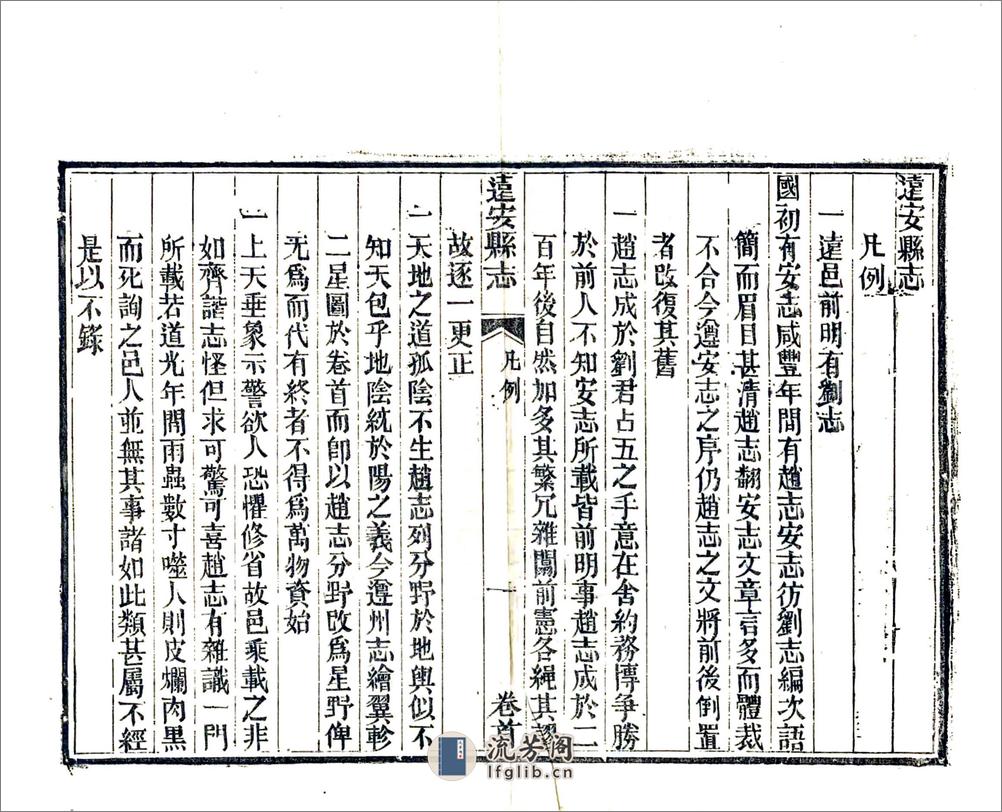 遠安縣志
凡例
一遠邑前明有劉志
國初有安志咸豐年間有趙志安志彷劉志編次語
簡而眉目甚清趙志翻安志文章言多而體裁
不合今遵安志之序仍趙志之文將前後倒置
者改復其舊
一趙志成於劉君占五之手意在舍約務博爭勝
於前人不知安志所載皆前明事趙志成於二
百年後自然加多其繁冗雜闒前憲各繩其謬
遠安縣志
凡例
一
卷首
故逐一更正
一天地之道孤陰不生趙志列分野於地輿似不
知天包乎地陰統於陽之義今遵州志繪翼軫
二星圖於卷首而即以趙志分野改爲星野俾
无爲而代有終者不得爲萬物資始
一上天垂象示警欲人恐懼修省故邑乘載之非
如齊諧志怪但求可驚可喜趙志有雜識一門
所載若道光年間雨蟲數寸噬人則皮爛肉黑
而死詢之邑人並無其事諸如此類甚屬不經
是以不錄
流芳閣
lfglib.cn